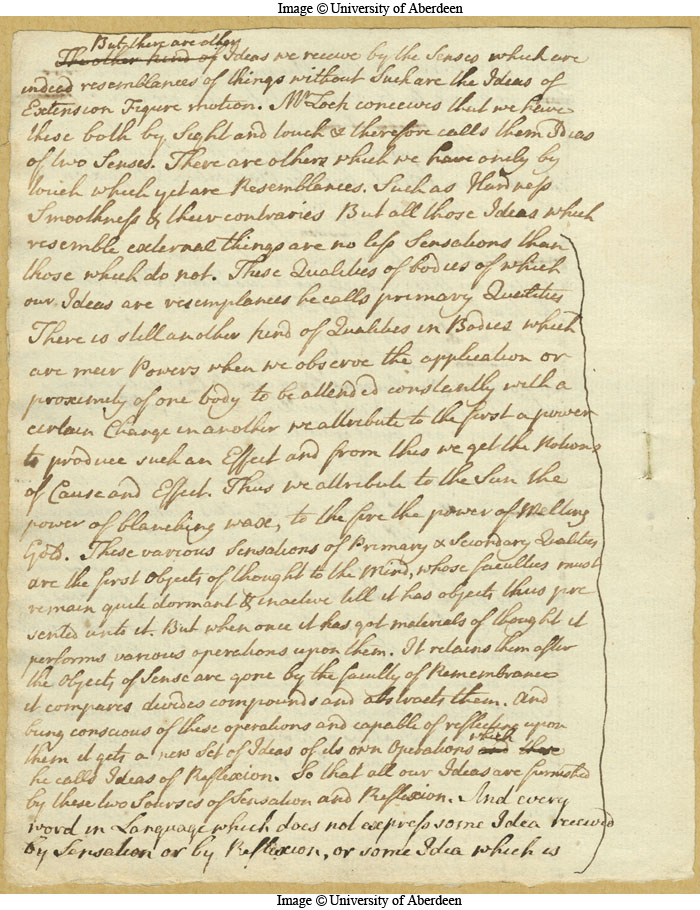 Image © University of Aberdeen
But there are other
The other kind of Ideas we receive by the Senses which are
indeed resemblances of things without Such are the Ideas of
Extension Figure motion. Mr Lock conceives that we have
these both by Sight and touch & therefore calls them Ideas
of two Senses. There are others which we have onely by
touch which yet are Resemblances. Such as Hardness
Smoothness & their contraries But all those Ideas which
resemble external things are no less Sensations than
those which do not. These Qualities of bodies of which
our Ideas are resemplances he calls primary Qualities
There is still another kind of Qualities in Bodies which
are meer Powers when we observe the application or
proximity of one body to be attended constantly with a
certain Change in another we attribute to the first a power
to produce such an Effect and from this we get the Notions
of Cause and Effect. Thus we attribute to the Sun the
power of blanching wax, to the fire the power of Melling
Gold. These various Sensations of Primary & Secondary Qualities
are the first Objects of thought to the Mind, whose faculties must
remain quite dormant & inactive till it has objects thus pre
sented unto it. But when once it has got materials of thought it
performs various operations upon them. It retains them after
the Objects of Sense are gone by the faculty of Remembrance
it compares divides compounds and abstracts them. And
being conscious of these operations and capable of reflecting upon
them it gets a new Set of Ideas of its own Operations which and these
he calls Ideas of Reflexion. So that all our Ideas are furnished
by these two Sourses of Sensation and Reflexion. And every
word in Language which does not express some Idea received
by Sensation or by Reflexion, or some Idea which is
Image © University of Aberdeen